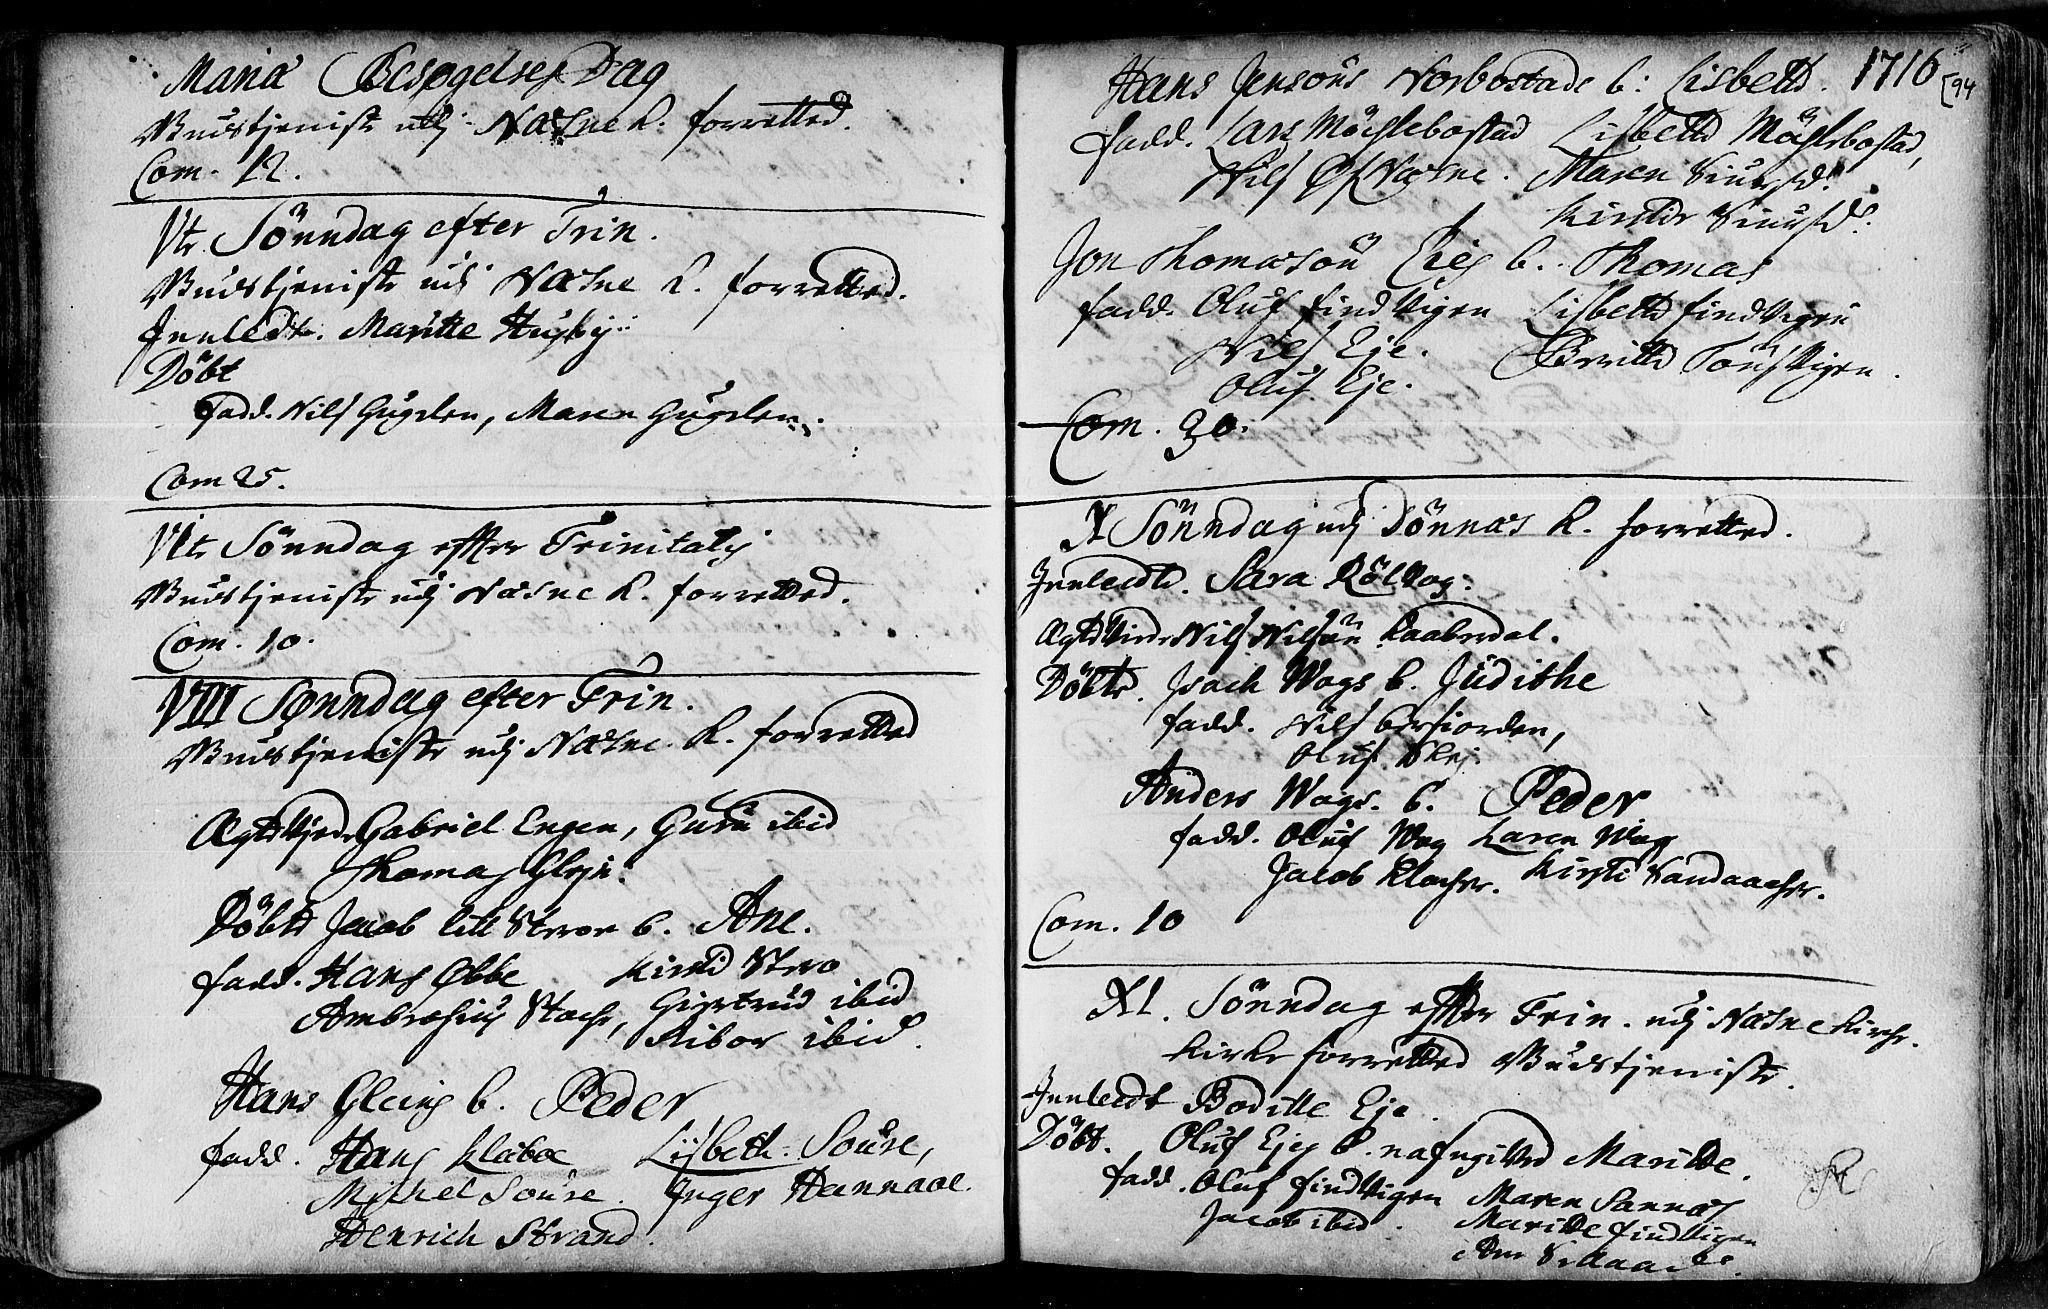 Mariæ Besøgelses Dag
Gudstjeniste udj Næsne K. forretted.
Com. 12.
Vte Sönndag efter Trin.
Gudstjeniste udj Næsne K. forretted.
Innledt. Maritte Husby
Döbt
fadd. Nils Gugelen, Maren Gugelen.
Com 25.
VIte Sönndag effter Trinitatis
Gudstjeniste udj Næsne K. forretted.
Com. 10.
VIII Sønndag efter Trin.
Gudstjeniste udj Næsne K. forretted
Ægtevjede Gabriel Engen, Guru ibid
Thomas Glejn.
Döbte Jacob litl Stroe b. Ane.
fadd. Hans Obbe Kirsti Stro
Ambrosius Stoche, Giertrud ibid
Ribor ibid.
Hans Gleins b. Peder
fadd. Hans Klaboe Lisbeth Souse,
Michel Souse. Inger Hannaae
Henrich Strand.
1716
94
Hans Jensöns Norbostads b: Lisbeth.
fadd. Lars Möchlebostad Lisbeth Möchlebostad,
Nils Ø. Næsne. Maren Siursd.
Kirstie Siursd.
Jon Thomasön Ejes b. Thomas
fadd. Oluf findvigen Lisbeth findvigen
Nils Eje. Berritte Tousvigen.
Oluf Eje.
Com. 30.
X Sönndag udj Dönnæs K. forretted.
Innledt. Sara Rölvog.
Ægtevied Nils Nilsön Kaaberdal.
Döbte. Isach Wogs b. Judithe
fadd. Nils Berfiorden,
Oluf Skej.
Anders Wogs. b. Peder
fadd. Oluf Wog Karen Wog
Jacob Klocher. Kirsti Sandaacher.
Com. 10
XI. Sönndag effter Trin. udj Næsne Kirche
Kirke forretted Gudstjeniste.
Innledt Boditte Eje.
Döbt. Oluf Ejes b. nafngived Maritte.
fadd. Oluf findvigen Maren Sannes
Jacob ibid. Maritte findvigen
Ane